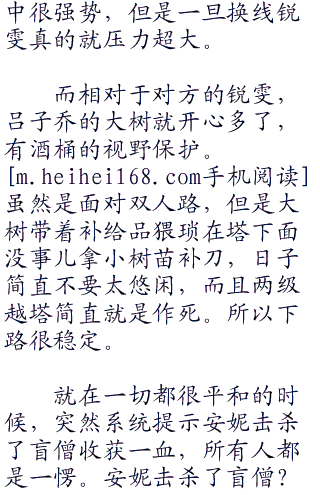 中很强势，但是一旦换线锐
雯真的就压力超大。
而相对于对方的锐雯，
吕子乔的大树就开心多了，
有酒桶的视野保护。
[m.heihei168.com手机阅读]
虽然是面对双人路，但是大
树带着补给品猥琐在塔下面
没事儿拿小树苗补刀，日子
简直不要太悠闲，而且两级
越塔简直就是作死。所以下
路很稳定。
就在一切都很平和的时
候，突然系统提示安妮击杀
了盲僧收获一血，所有人都
是一愣。安妮击杀了盲僧？